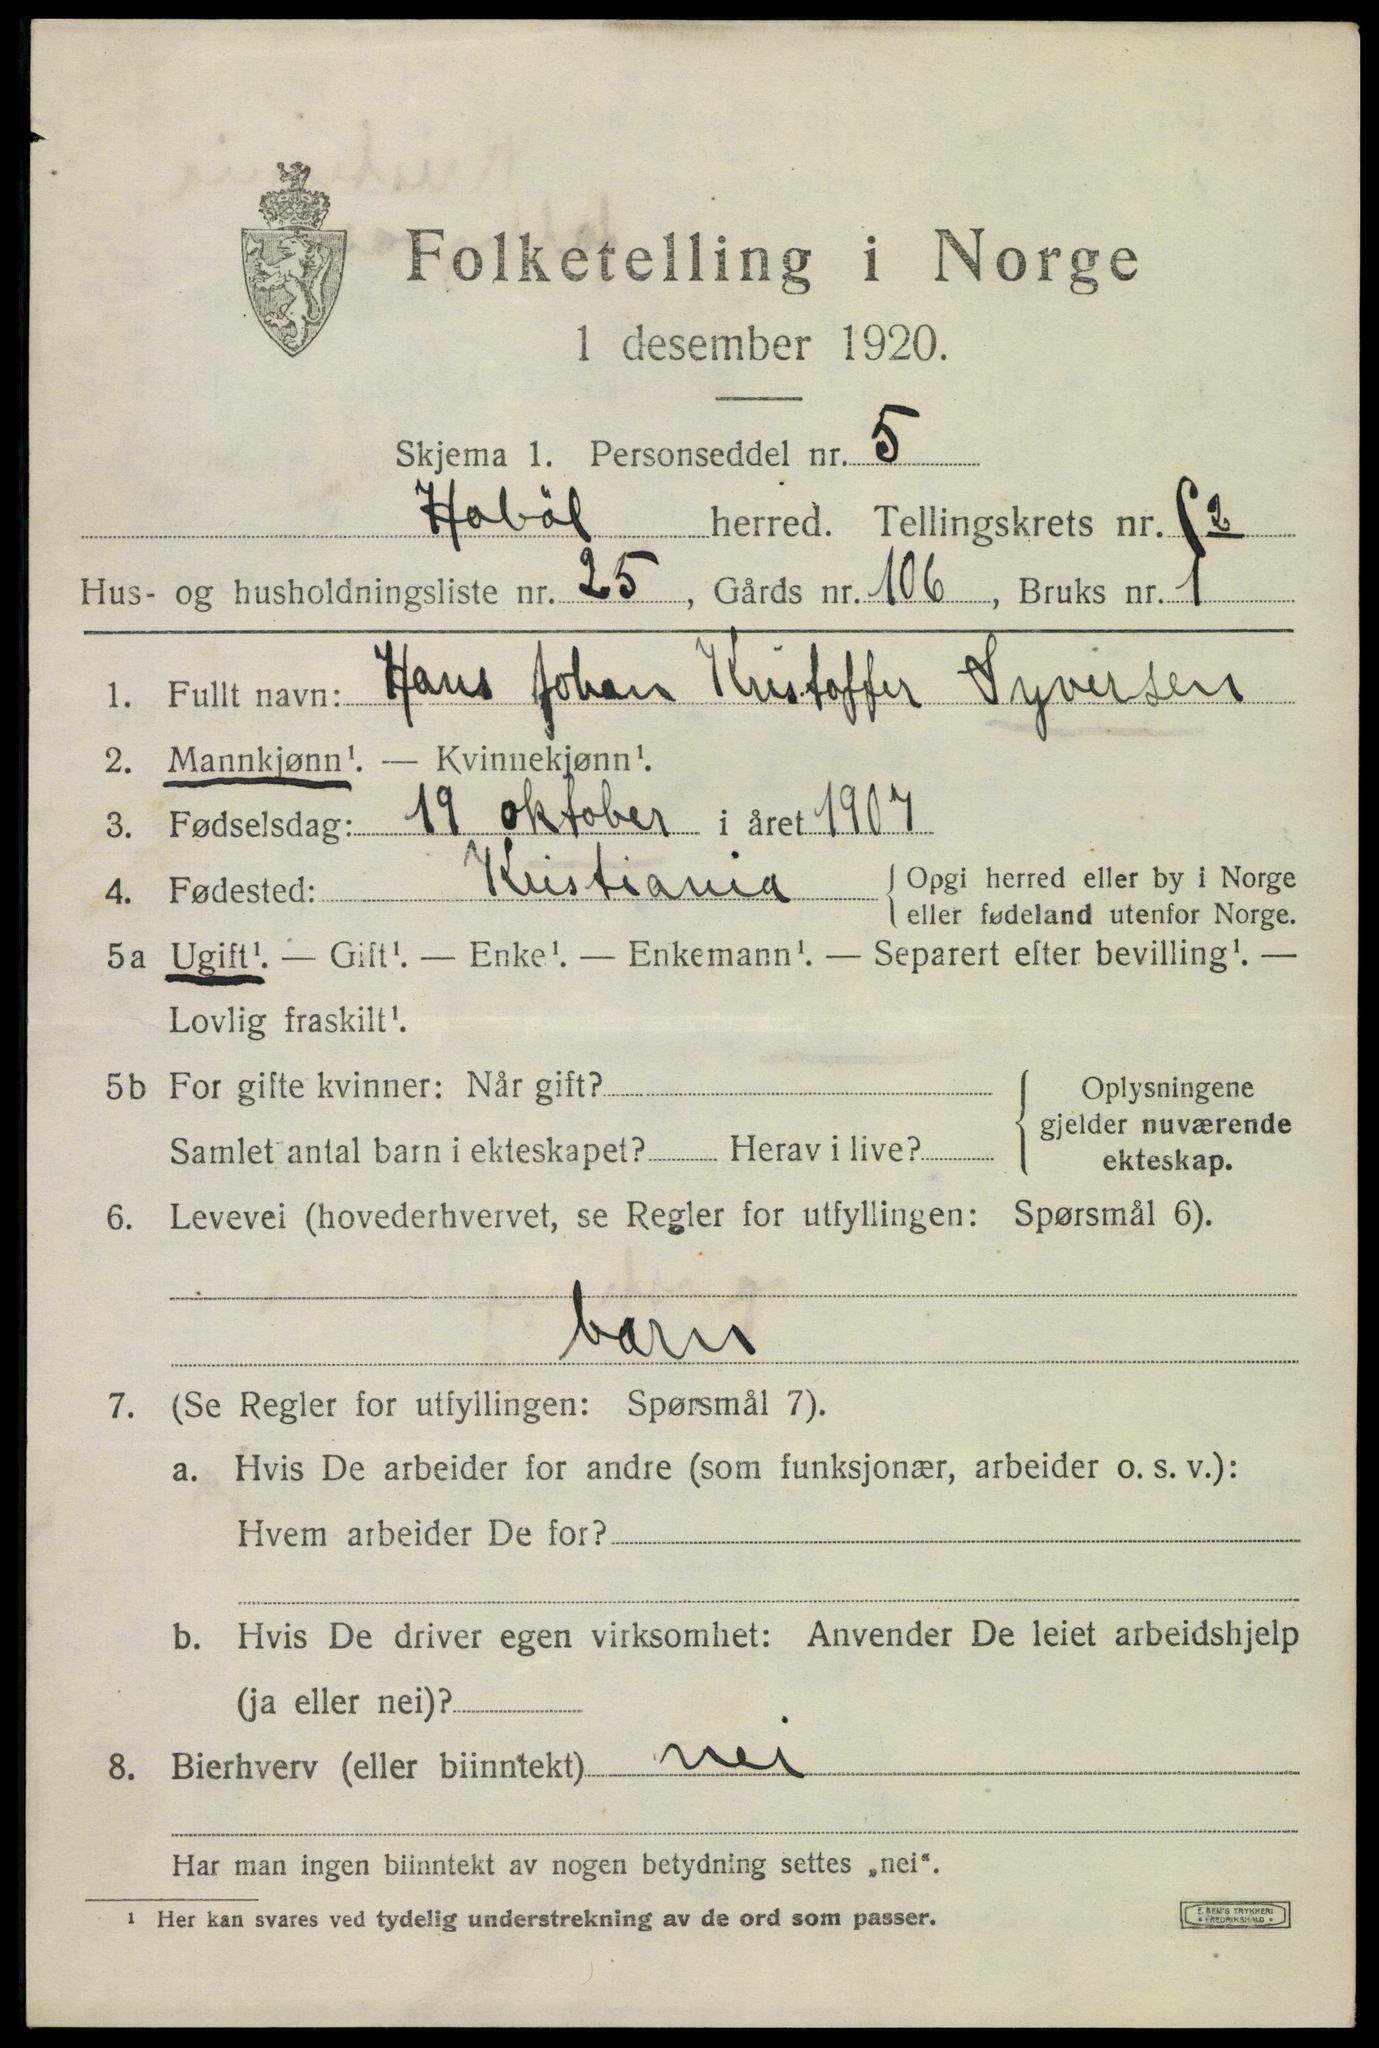 Folketelling i Norge
1 desember 1920.
Skjema 1. Personseddel nr. 5
Hobøl herred. Tellingskrets nr. 2
Hus- og husholdningsliste nr. 25, Gårds nr. 106, Bruks nr. 1
1. Fullt navn: Hans Johan Kristoffer Syversen
2. Mannkjønn¹. — Kvinnekjønn¹.
3. Fødselsdag: 19 oktober i året 1907
4. Fødested: Kristiania { Opgi herred eller by i Norge
eller fødeland utenfor Norge.
5a Ugift¹. — Gift¹. — Enke¹. — Enkemann¹. — Separert efter bevilling¹. —
Lovlig fraskilt¹.
5b For gifte kvinner: Når gift? { Oplysningene
gjelder nuværende
Samlet antal barn i ekteskapet? Herav i live? ekteskap.
6. Levevei (hovederhvervet, se Regler for utfyllingen: Spørsmål 6).
barn
7. (Se Regler for utfyllingen: Spørsmål 7).
a. Hvis De arbeider for andre (som funksjonær, arbeider o. s. v.):
Hvem arbeider De for?
b. Hvis De driver egen virksomhet: Anvender De leiet arbeidshjelp
(ja eller nei)?
8. Bierhverv (eller biinntekt) nei
Har man ingen biinntekt av nogen betydning settes „nei“.
¹ Her kan svares ved tydelig understrekning av de ord som passer.
E. SEM'S TRYKKERI
* FREDRIKSHALD *